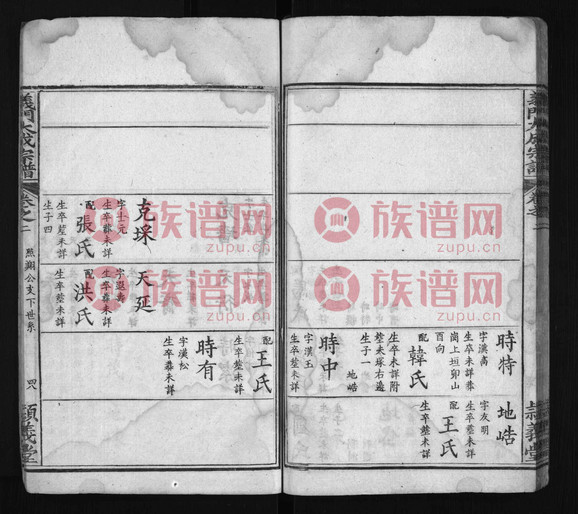 義門大成宗譜
卷之二
時特
字漢高
生卒未詳葬
崗上垣卯山
酉向
配
韓氏
生卒未詳附
塋太塚右邊
生子一
地皓
時中
字漢玉
生卒塋未詳
地皓
字友明
生卒塋未詳
配
王氏
生卒塋未詳
義門大成宗譜
卷之二
熙湖公支下世系
克埰
字士元
生卒葬未詳
配
張氏
生卒塋未詳
生子四
天延
生卒葬未詳
配
洪氏
生卒塋未詳
配
王氏
生卒塋未詳
時有
字漢松
生卒葬未詳
族谱网
www.zupu.cn
族谱网
www.zupu.cn
族谱网
www.zupu.cn
族谱网
www.zupu.cn